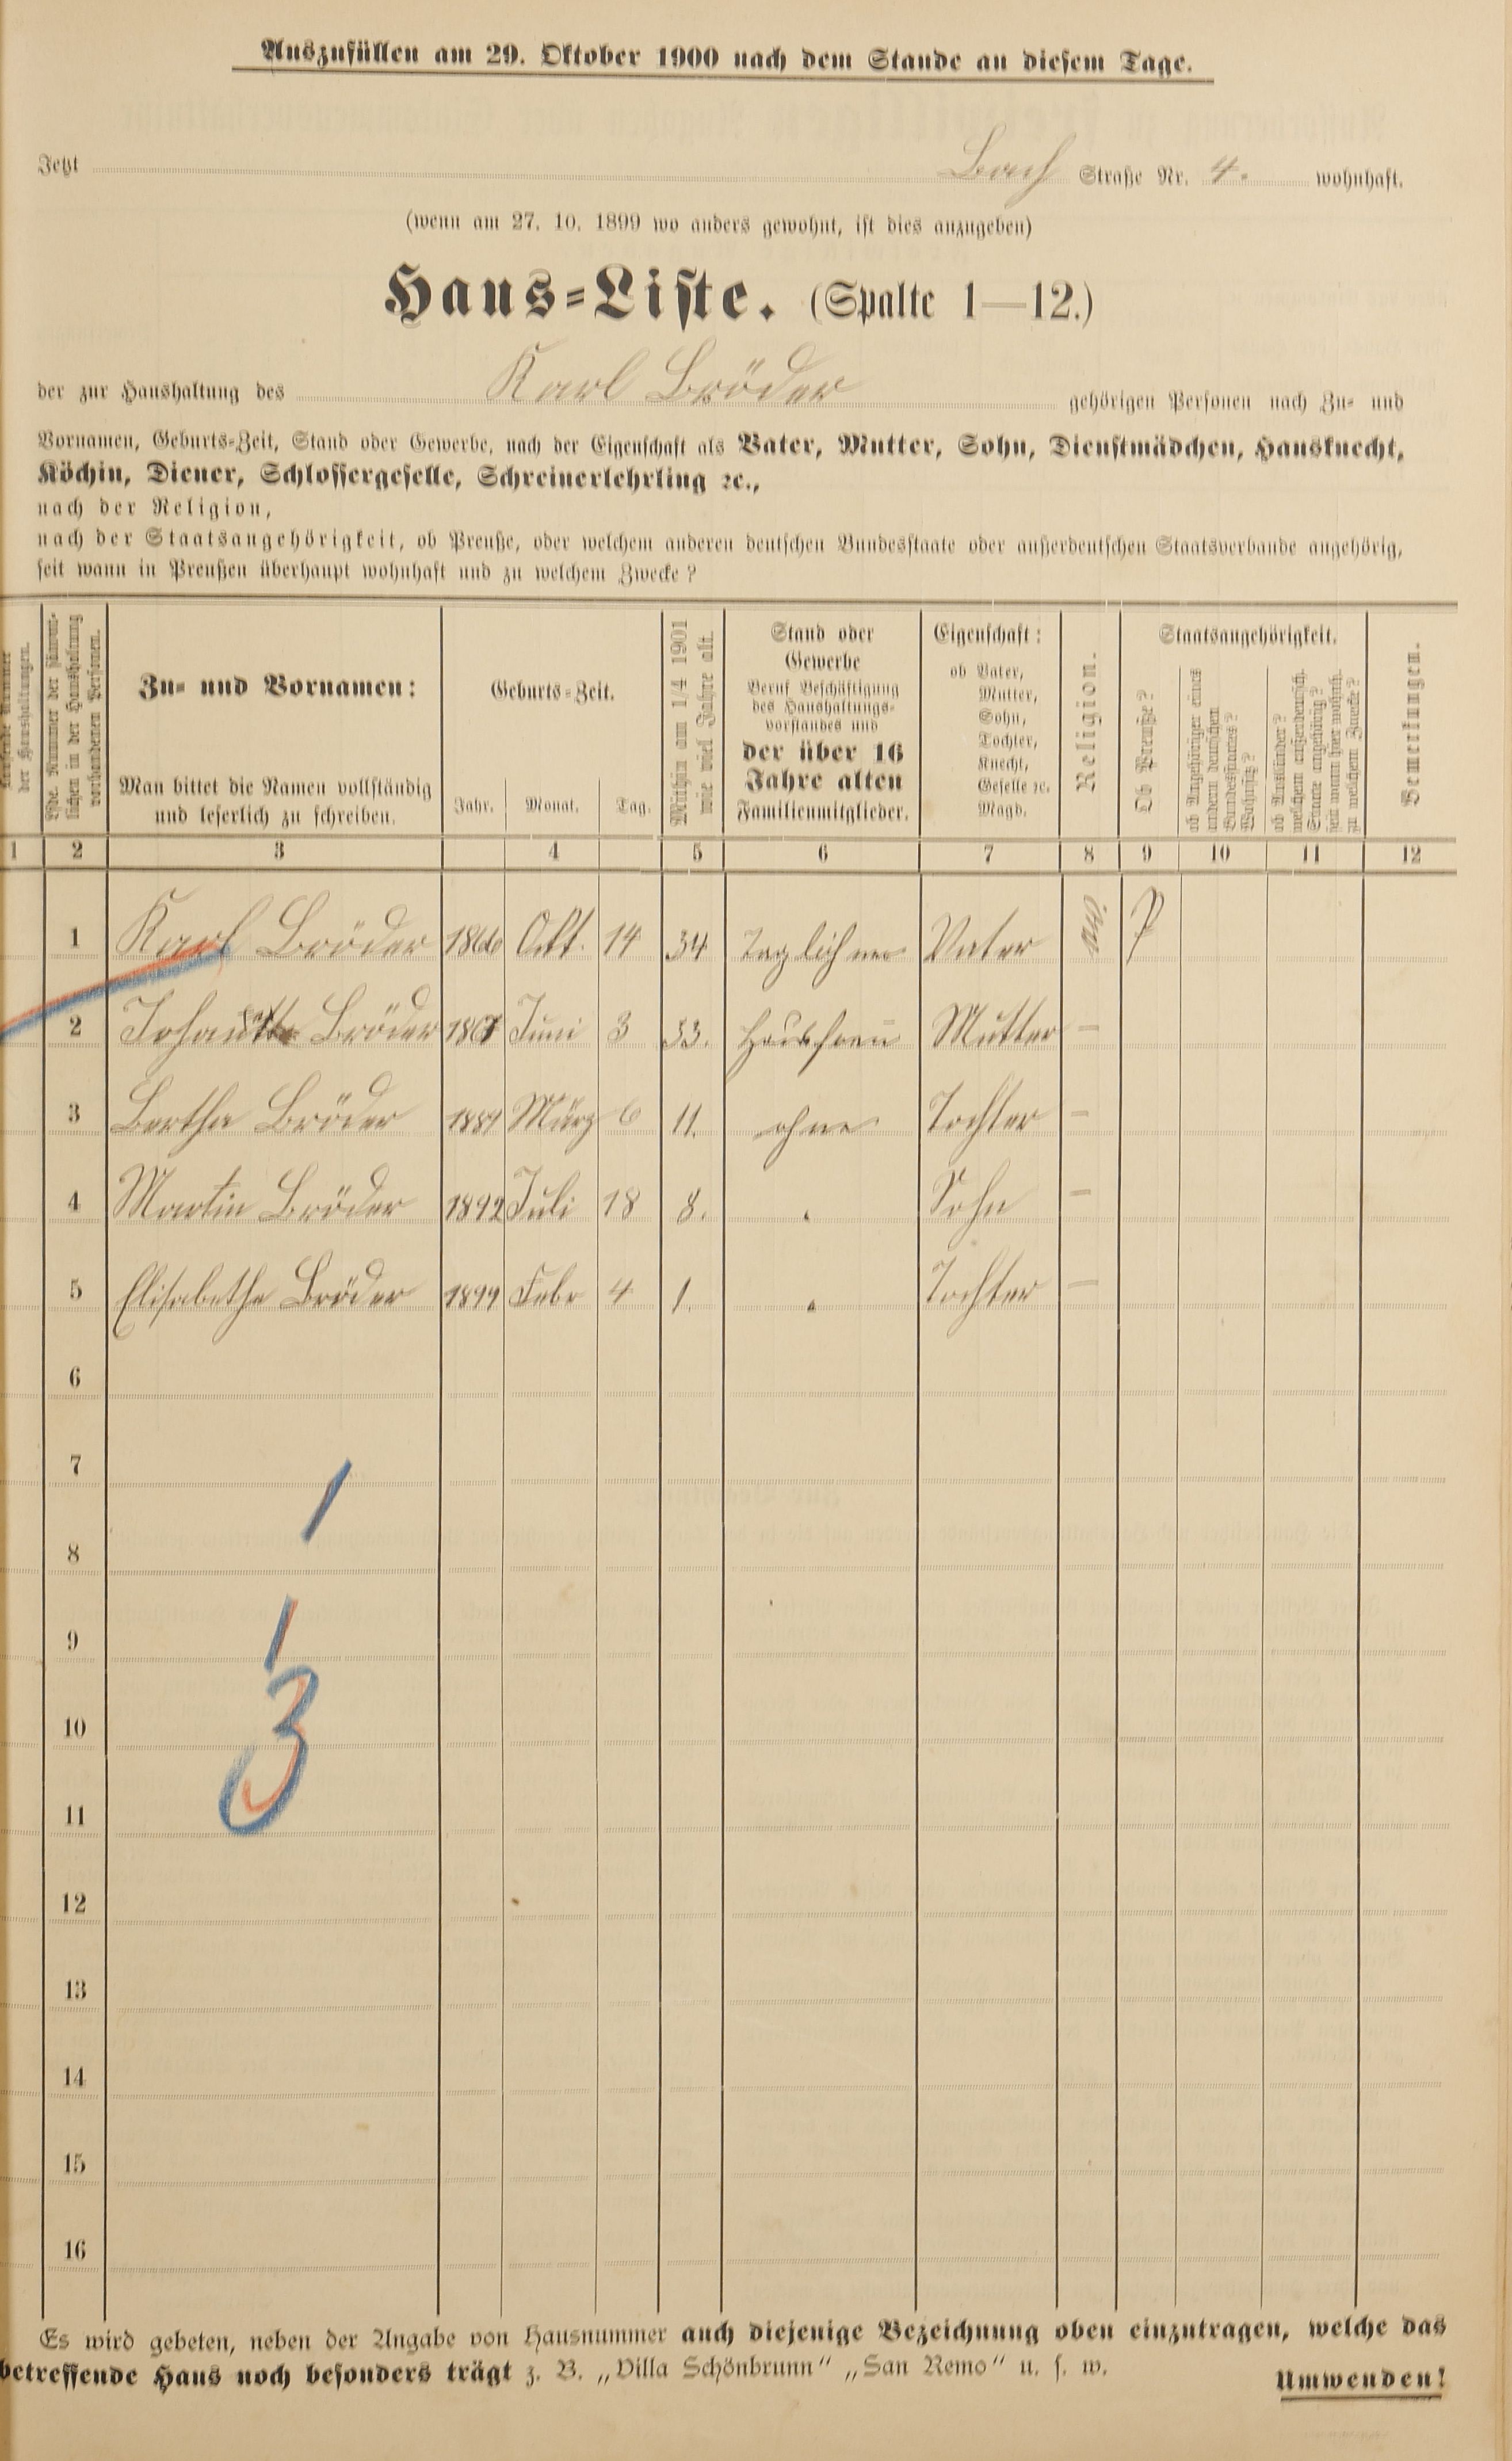 Auszufüllen am 29. Oktober 1900 nach dem Stande an diesem Tage.
Jetzt Bach Straße Nr. 4. wohnhaft.
(wenn am 27. 10. 1899 wo anders gewohnt, ist dies anzugeben)
Haus-Liste. (Spalte 1—12.)
der zur Haushaltung des Karl Bröder gehörigen Personen nach Zu- und
Vornamen, Geburts-Zeit, Stand oder Gewerbe, nach der Eigenschaft als Vater, Mutter, Sohn, Dienstmädchen, Hausknecht,
Köchin, Diener, Schlossergeselle, Schreinerlehrling ꝛc.,
nach der Religion,
nach der Staatsangehörigkeit, ob Preuße, oder welchem anderen deutschen Bundesstaate oder außerdeutschen Staatsverbande angehörig,
seit wann in Preußen überhaupt wohnhaft und zu welchem Zwecke?
Laufende Nummer
der Haushaltungen.
Lfde. Nummer der sämmt-
lichen in der Haushaltung
vorhandenen Personen.
Zu- und Vornamen:
Man bittet die Namen vollständig
und leserlich zu schreiben.
Geburts-Zeit.
Jahr. Monat. Tag.
Mithin am 1/4 1901
wie viel Jahre alt.
Stand oder
Gewerbe
Beruf Beschäftigung
des Haushaltungs-
vorstandes und
der über 16
Jahre alten
Familienmitglieder.
Eigenschaft:
ob Vater,
Mutter,
Sohn,
Tochter,
Knecht,
Geselle ꝛc.
Magd.
Religion.
Staatsangehörigkeit.
Ob Preuße?
ob Angehöriger eines
andern deutschen
Bundesstaates?
Wohnsitz?
ob Ausländer?
welchem außerdeutsch.
Staate angehörig?
seit wann hier wohnh.
zu welchem Zwecke?
Bemerkungen.
1 2 3 4 5 6 7 8 9 10 11 12
1 Karl Bröder 1866 Okt. 14 34 Taglöhner Vater P
2 Bröder 1867 Juni 3 33. Hausfrau Mutter —
3 Bertha Bröder 1889 März 6 11. ohne Tochter —
4 Martin Bröder 1892 Juli 18 8. " Sohn —
5 Elisabethe Bröder 1899 Febr 4 1. " Tochter —
6
7
1
8
1
9
3
10
11
12
13
14
15
16
Es wird gebeten, neben der Angabe von Hausnummer auch diejenige Bezeichnung oben einzutragen, welche das
betreffende Haus noch besonders trägt z. B. „Villa Schönbrunn“ „San Remo“ u. s. w.
Umwenden!